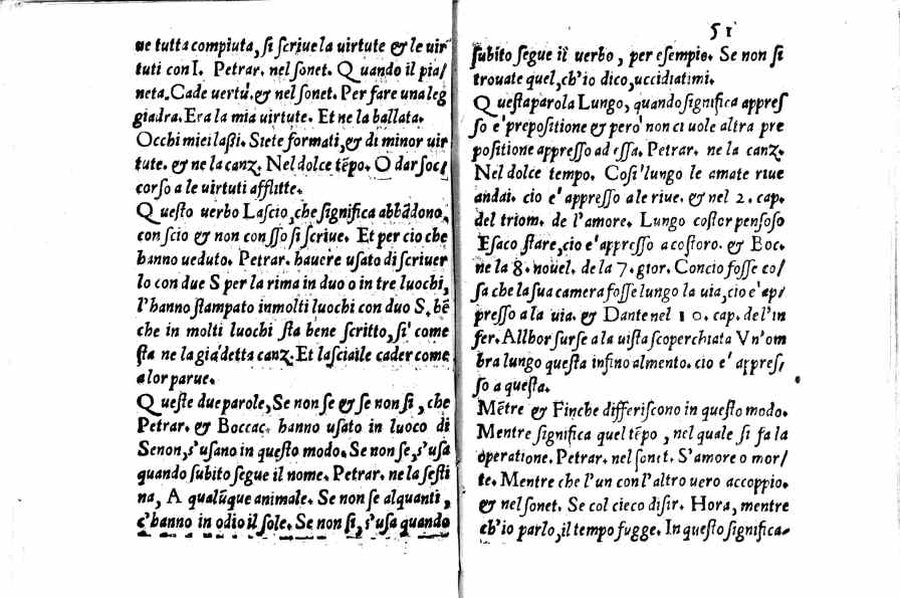 ue tutta compiuta, si scriue la uirtute & le uir
tuti con I. Petrar. nel sonet. Quando il pia/
neta. Cade uertu. & nel sonet. Per fare una leg
giadra. Era la mia uirtute. Et ne la ballata.
Occhi miei lassi. Siete formati, & di minor uir
tute. & ne la canz. Nel dolce tẽpo. O dar soc/
corso a le uirtuti afflitte.
Questo uerbo Lascio, che significa abbãdono,
con scio & non con sso si scriue. Et per cio che
hanno ueduto. Petrar. hauere usato di scriuer
lo con due S per la rima in duo o in tre luochi,
l'hanno stampato in molti luochi con duo S. bẽ
che in molti luochi sta bene scritto, si' come
sta ne la gia detta canz. Et lasciaile cader come
a lor parue.
Queste due parole, Se non se & se non si, che
Petrar. & Boccac. hanno usato in luoco di
Senon, s'usano in questo modo. Se non se, s'usa
quando subito segue il nome. Petrar. ne la sesti
na, A qualũque animale. Se non se alquanti,
c'hanno in odio il sole. Se non si, s'usa quando
51
subito segue il uerbo, per esempio. Se non si
trouate quel, ch'io dico, uccidiatimi.
Questa parola Lungo, quando significa appres
so e' prepositione & pero' non ci uole altra pre
positione appresso ad essa. Petrar. ne la canz.
Nel dolce tempo. Cosi' lungo le amate riue
andai. cio e' appresso a le riue. & nel 2. cap.
del triom. de l'amore. Lungo costor pensoso
Esaco stare, cio e' appresso a costoro. & Boc.
ne la 8. nouel. de la 7. gior. Concio fosse co/
sa che la sua camera fosse lungo la uia, cio e' ap/
presso a la uia. & Dante nel 10. cap. de l'in
fer. Allhor surse a la uista scoperchiata Vn'om
bra lungo questa infino al mento. cio e' appres/
so a questa.
Mẽtre & Finche differiscono in questo modo.
Mentre significa quel tẽpo, nel quale si fa la
operatione. Petrar. nel sonet. S'amore o mor/
te. Mentre che l'un con l'altro uero accoppio.
& nel sonet. Se col cieco disir. Hora, mentre
ch'io parlo, il tempo fugge. In questo significa-